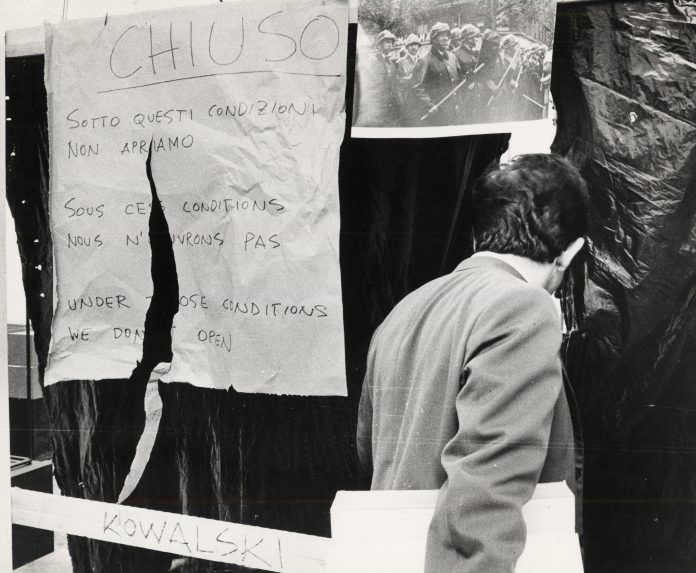 CHIUSO
SOTTO QUESTI CONDIZIONI
NON APRIAMO
SOUS CES CONDITIONS
NOUS N'OUVRONS PAS
UNDER THOSE CONDITIONS
WE DON'T OPEN
KOWALSKI